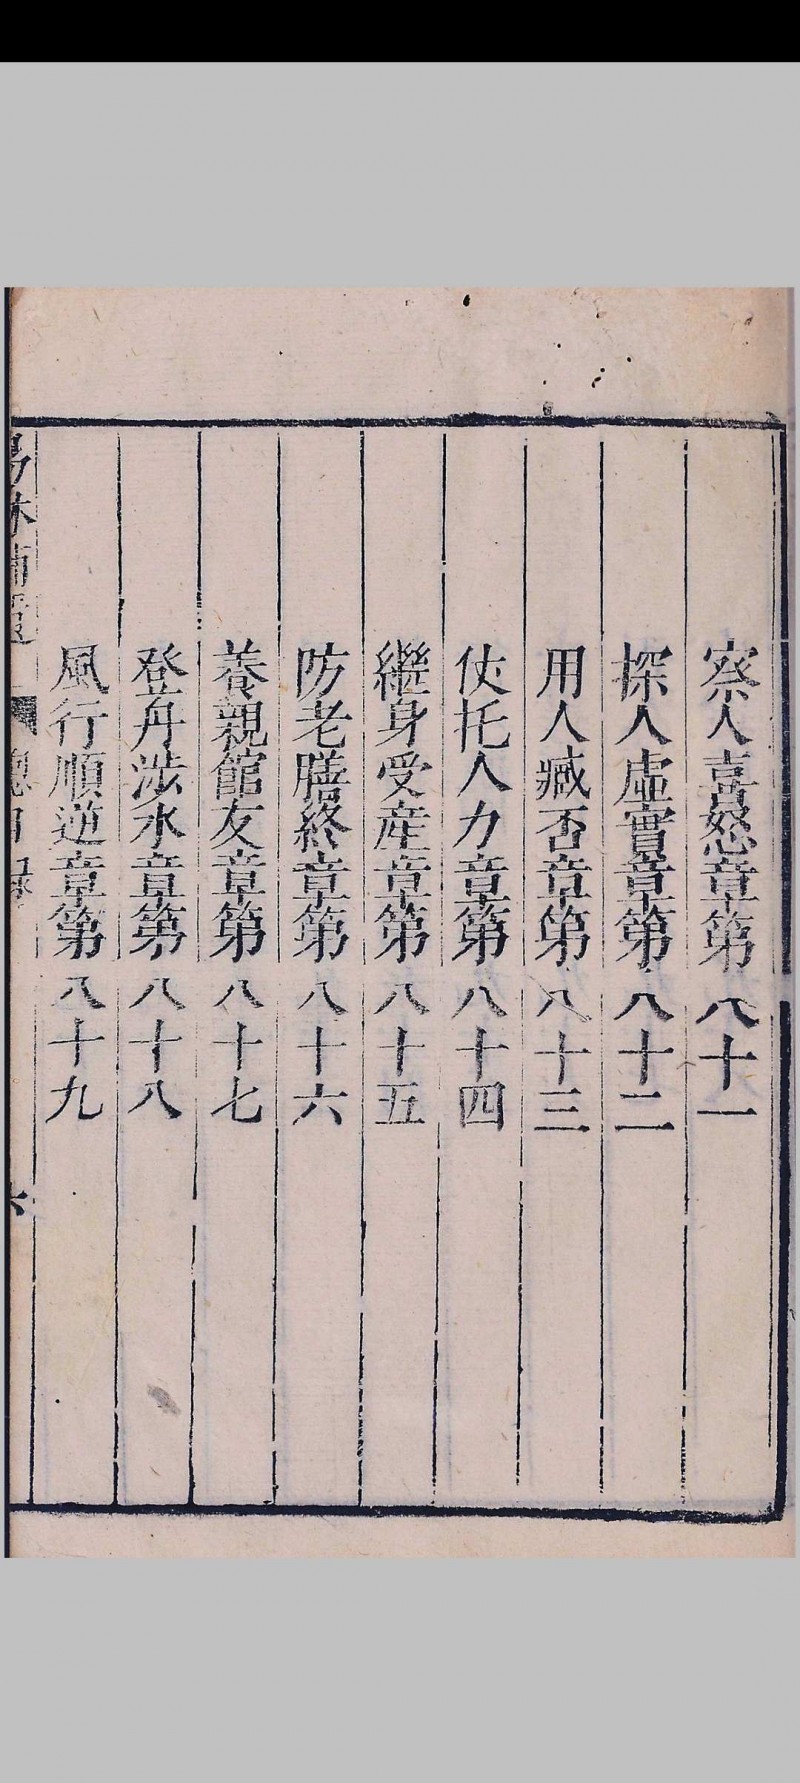 察人喜怒章第八十一
探人虛實章第八十二
用人臧否章第八十三
仗托人力章第八十四
繼身受産章第八十五
防老膳終章第八十六
養親館友章第八十七
登舟涉水章第八十八
風行順逆章第八十九
易林補遺 總目錄 六